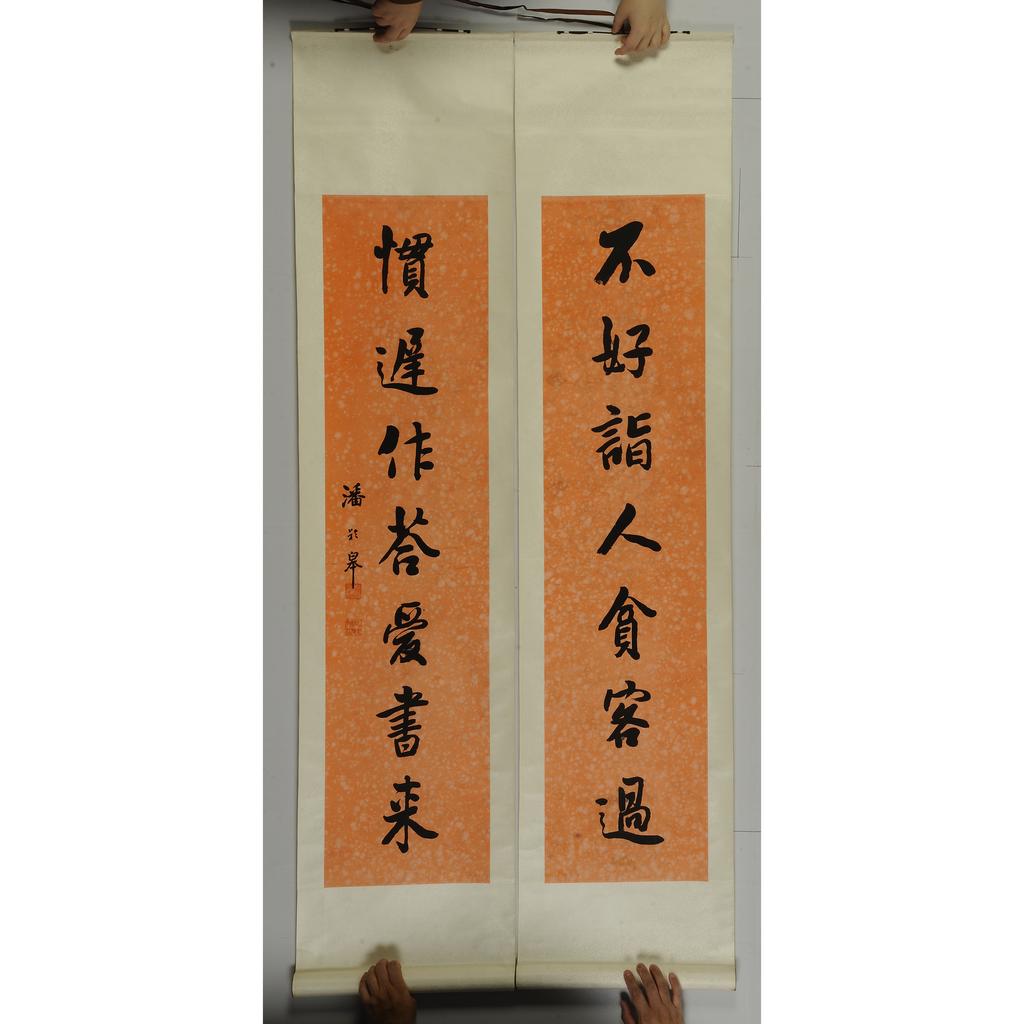 不好詣人貪客過
慣遲作荅愛書来
潘齡皋